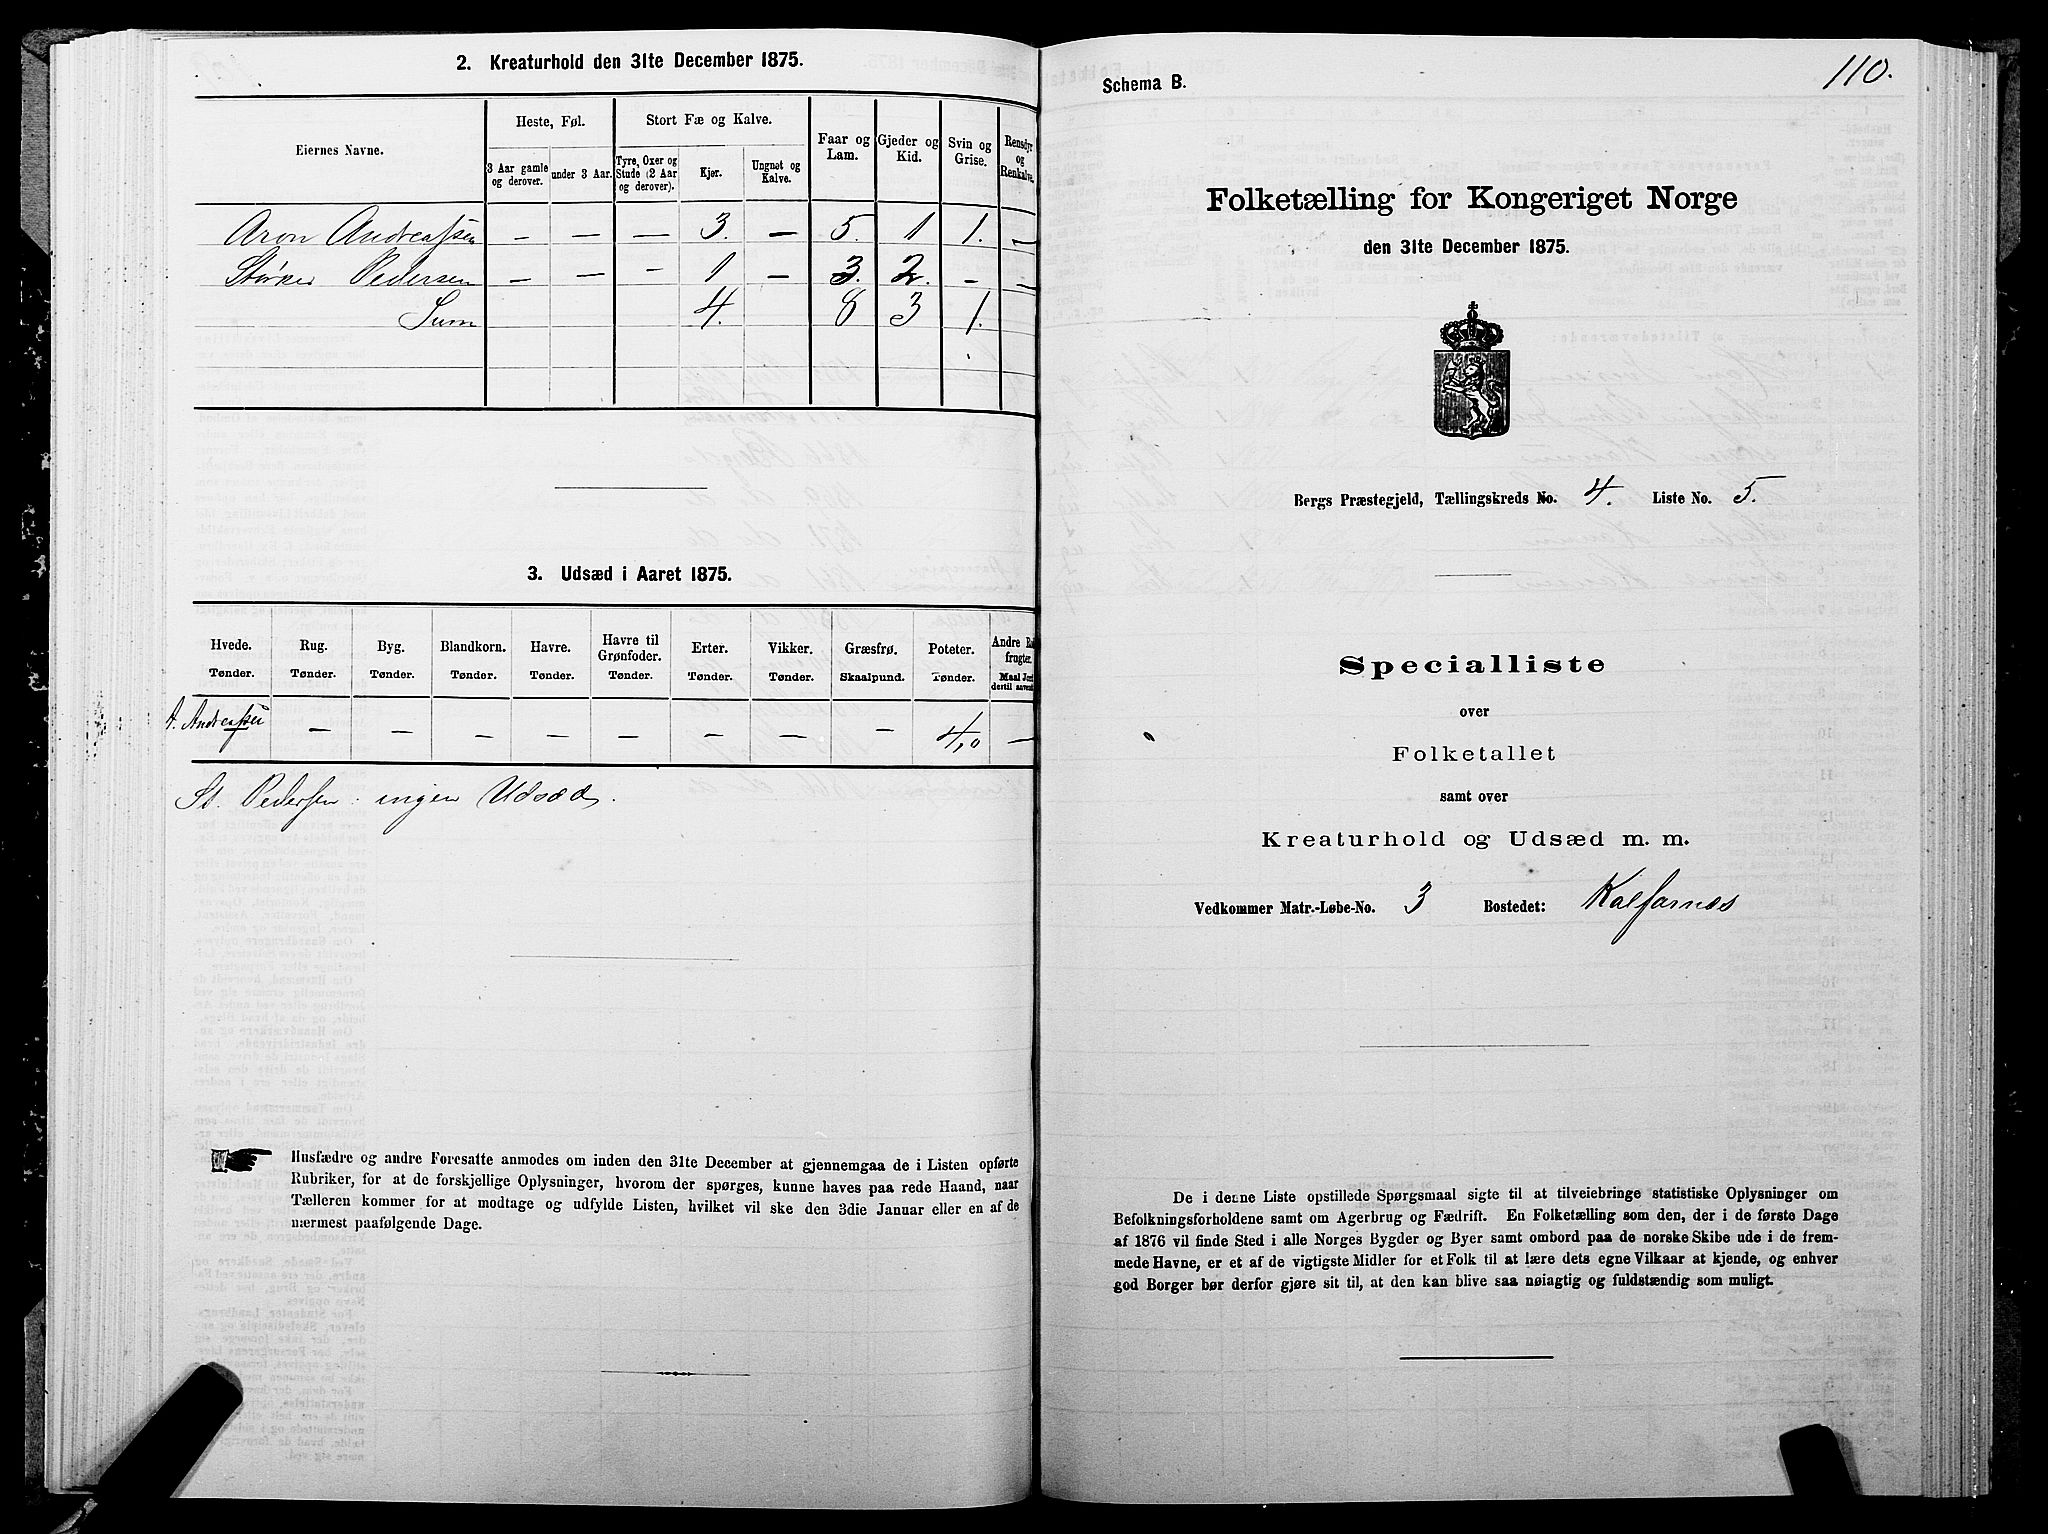 2. Kreaturhold den 31te December 1875.
Eiernes Navne.
Heste, Føl.
Stort Fæ og Kalve.
Faar og Lam.
Gjeder og Kid.
Svin og Grise.
Rensdyr og Renkalve.
3 Aar gamle og derover.
under 3 Aar.
Tyre, Oxer og Stude (2 Aar og derover).
Kjør.
Ungnøt og Kalve.
Aron Andreassen – – – 3. – 5. 1 1. –
Størker Pedersen – – – 1 – 3. 2. – –
Sum 4. 8 3 1.
3. Udsæd i Aaret 1875.
Hvede. Rug. Byg. Blandkorn. Havre. Havre til Grønfoder. Erter. Vikker. Græsfrø. Poteter. Andre
Tønder. Tønder. Tønder. Tønder. Tønder. Tønder. Tønder. Tønder. Skaalpund. Tønder.
A. Andreassen – – – – – – – – – 4,0 –
St. Pedersen: ingen Udsæd.
Husfædre og andre Foresatte anmodes om inden den 31te December at gjennemgaa de i Listen opførte
Rubriker, for at de forskjellige Oplysninger, hvorom der spørges, kunne haves paa rede Haand, naar
Tælleren kommer for at modtage og udfylde Listen, hvilket vil ske den 3die Januar eller en af de
nærmest paafølgende Dage.
110.
Schema B.
Folketælling for Kongeriget Norge
den 31te December 1875.
Bergs Præstegjeld, Tællingskreds No. 4. Liste No. 5.
Specialliste
over
Folketallet
samt over
Kreaturhold og Udsæd m. m.
Vedkommer Matr.-Løbe-No. 3 Bostedet: Kalfarnes
De i denne Liste opstillede Spørgsmaal sigte til at tilveiebringe statistiske Oplysninger om
Befolkningsforholdene samt om Agerbrug og Fædrift. En Folketælling som den, der i de første Dage
af 1876 vil finde Sted i alle Norges Bygder og Byer samt ombord paa de norske Skibe ude i de frem-
mede Havne, er et af de vigtigste Midler for et Folk til at lære dets egne Vilkaar at kjende, og enhver
god Borger bør derfor gjøre sit til, at den kan blive saa nøiagtig og fuldstændig som muligt.